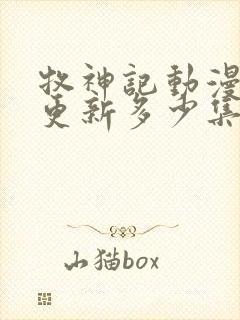 牧神記動漫
更新多少集
山猫box